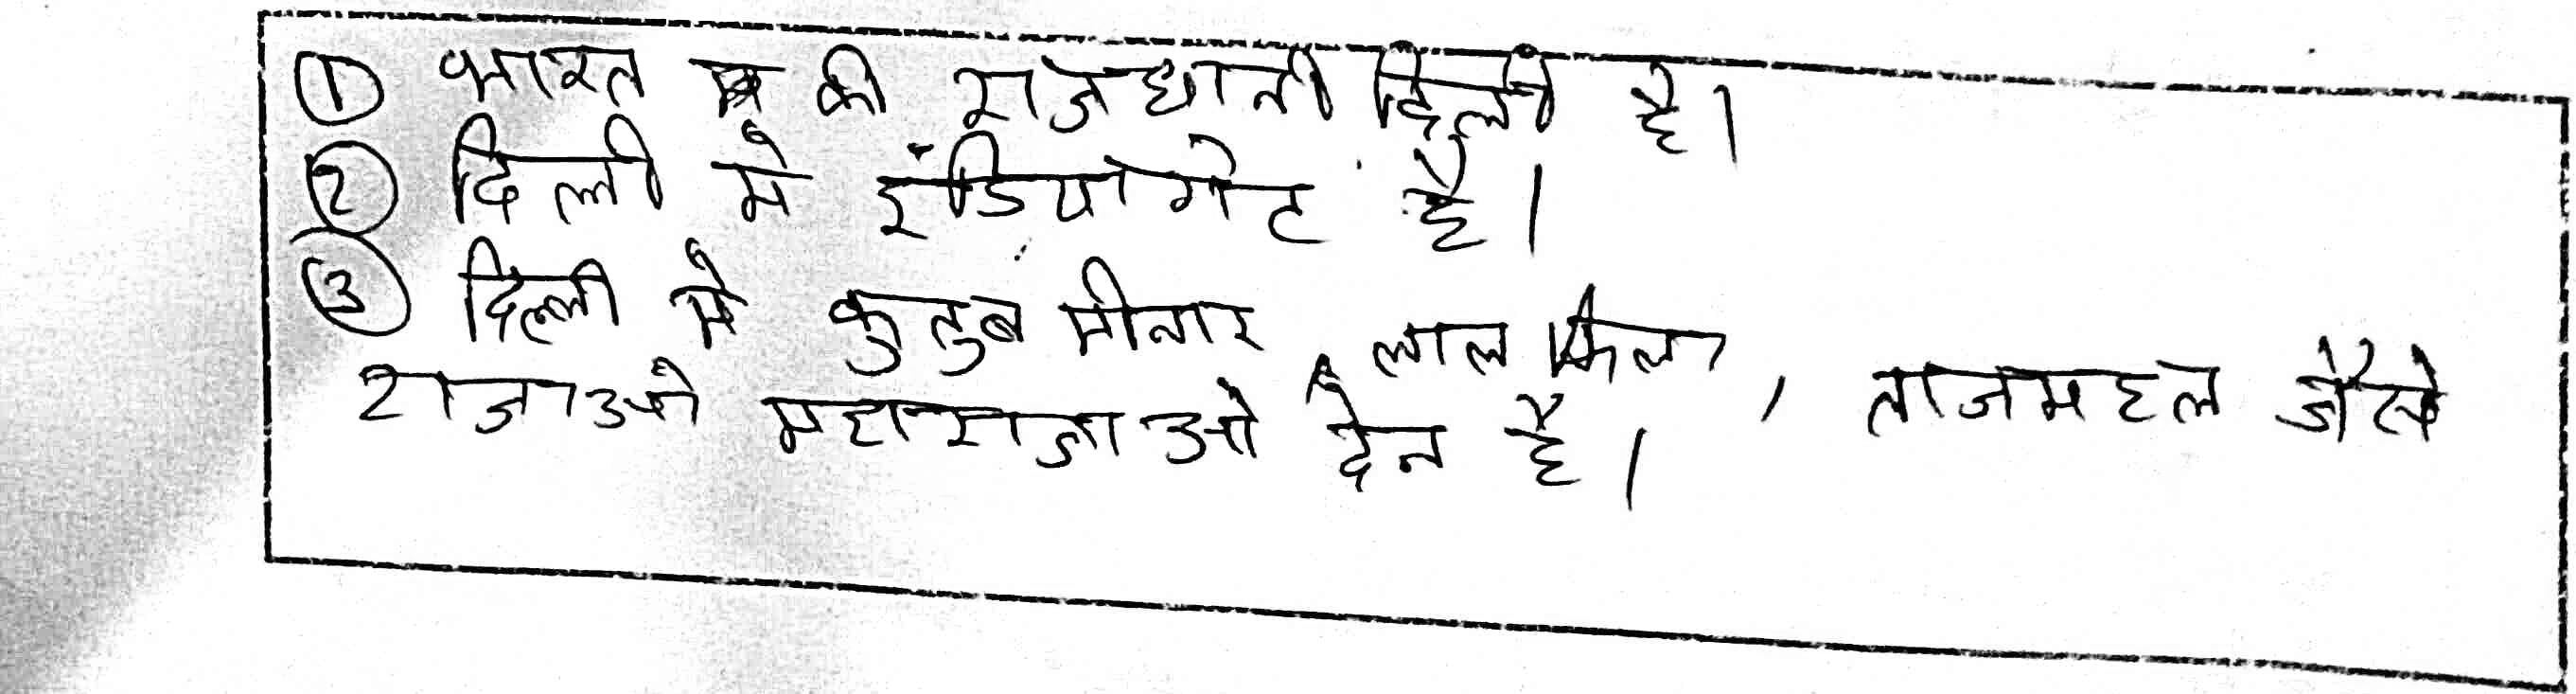 ① भारत की राजधानी दिल्ली है।
② दिल्ली मे इंडिया गेट है।
③ दिल्ली मे कुतुब मीनार, लाल किला, ताजमहल जैसे
राजाओ महाराजाओ देन है।